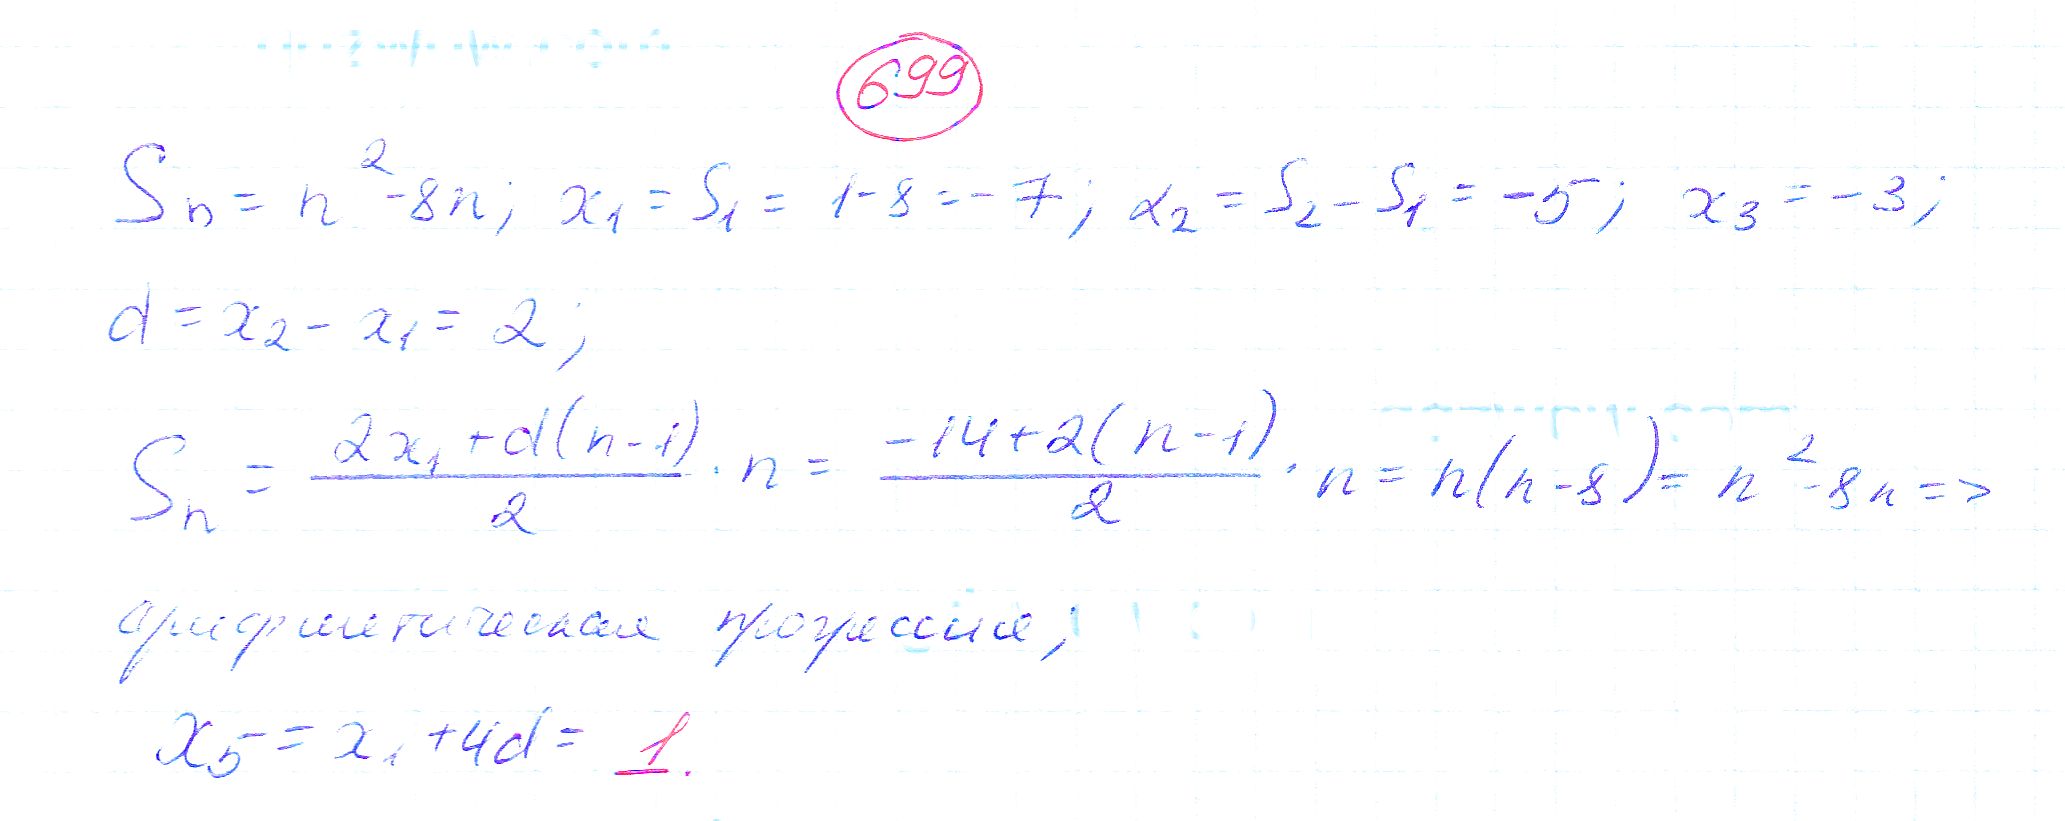 699
Sn = n² - 8n; x₁ = S₁ = 1 - 8 = -7; x₂ = S₂ - S₁ = -5; x₃ = -3;
d = x₂ - x₁ = 2;
Sn = (2x₁ + d(n-1))/2 · n = (-14 + 2(n-1))/2 · n = n(n-8) = n² - 8n =>
арифметическая прогрессия;
x₅ = x₁ + 4d = 1.